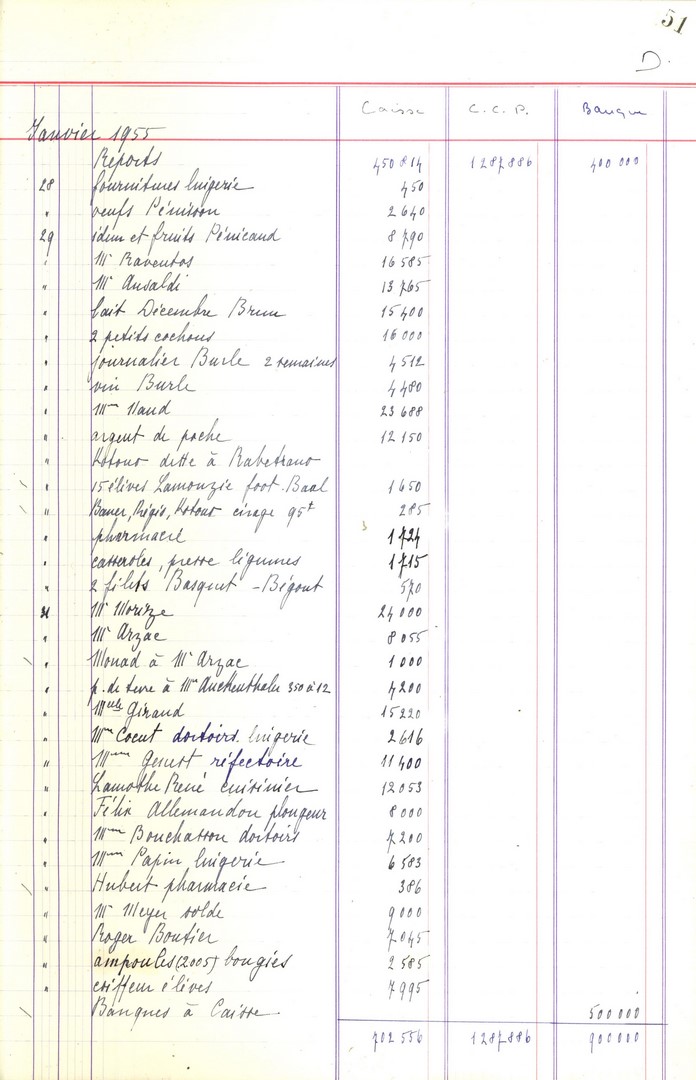 51
D.
Caisse C.C.P. Banque
Janvier 1955
Réports 450 814 1287 886 400 000
28 fournitures lingerie 450
" oeufs Pénisson 2 640
29 idem et fruits Pénicaud 8 790
" Mr Raventos 16 585
" Mr Ansaldi 13 765
" lait Décembre Brun 15 400
" 2 petits cochons 16 000
" journalier Burle 2 semaines 4 512
" vin Burle 4 480
" Mme Nand 23 688
" argent de poche 12 150
" Kotouo dette à Rabetrano
" 15 élèves Lamouzie foot-Baal 1 650
" Baner, Régis, Kotouo cirage 95f 285
" pharmacie 1 724
" casseroles, presse légumes 1 715
" 2 filets Basquet - Bégout 570
31 Mr Morize 24 000
" Mr Arzac 8 055
" Monad à Mr Arzac 1 000
" p. de terre à Mme 350 à 12 4 200
" Melle Giraud 15 220
" Mme Coeut dortoirs lingerie 2 616
" Mme Genest réfectoire 11 400
" Lamothe René cuisinier 12 053
" Félix Allemandou plongeur 8 000
" Mme Bouchasson dortoirs 7 200
" Mme Papin lingerie 6 583
" Hubert pharmacie 386
" Mr Meyer solde 9 000
" Roger Boutier 7 045
" ampoules (2005) bougies 2 585
" coiffeur élèves 7 995
Banques à Caisse 500 000
702 556 1287 886 900 000